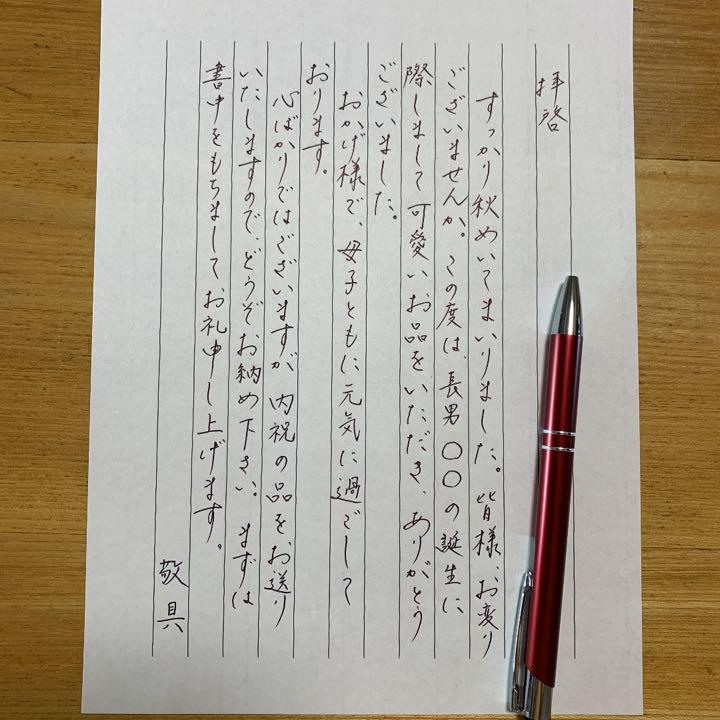 拝啓
すっかり秋めいてまいりました。皆様、お変り
ございませんか。この度は、長男〇〇の誕生に
際しまして可愛いお品をいただき、ありがとう
ございました。
おかげ様で、母子ともに元気に過ごして
おります。
心ばかりではございますが、内祝の品を、お送り
いたしますので、どうぞお納め下さい。まずは
書中をもちましてお礼申し上げます。
敬具